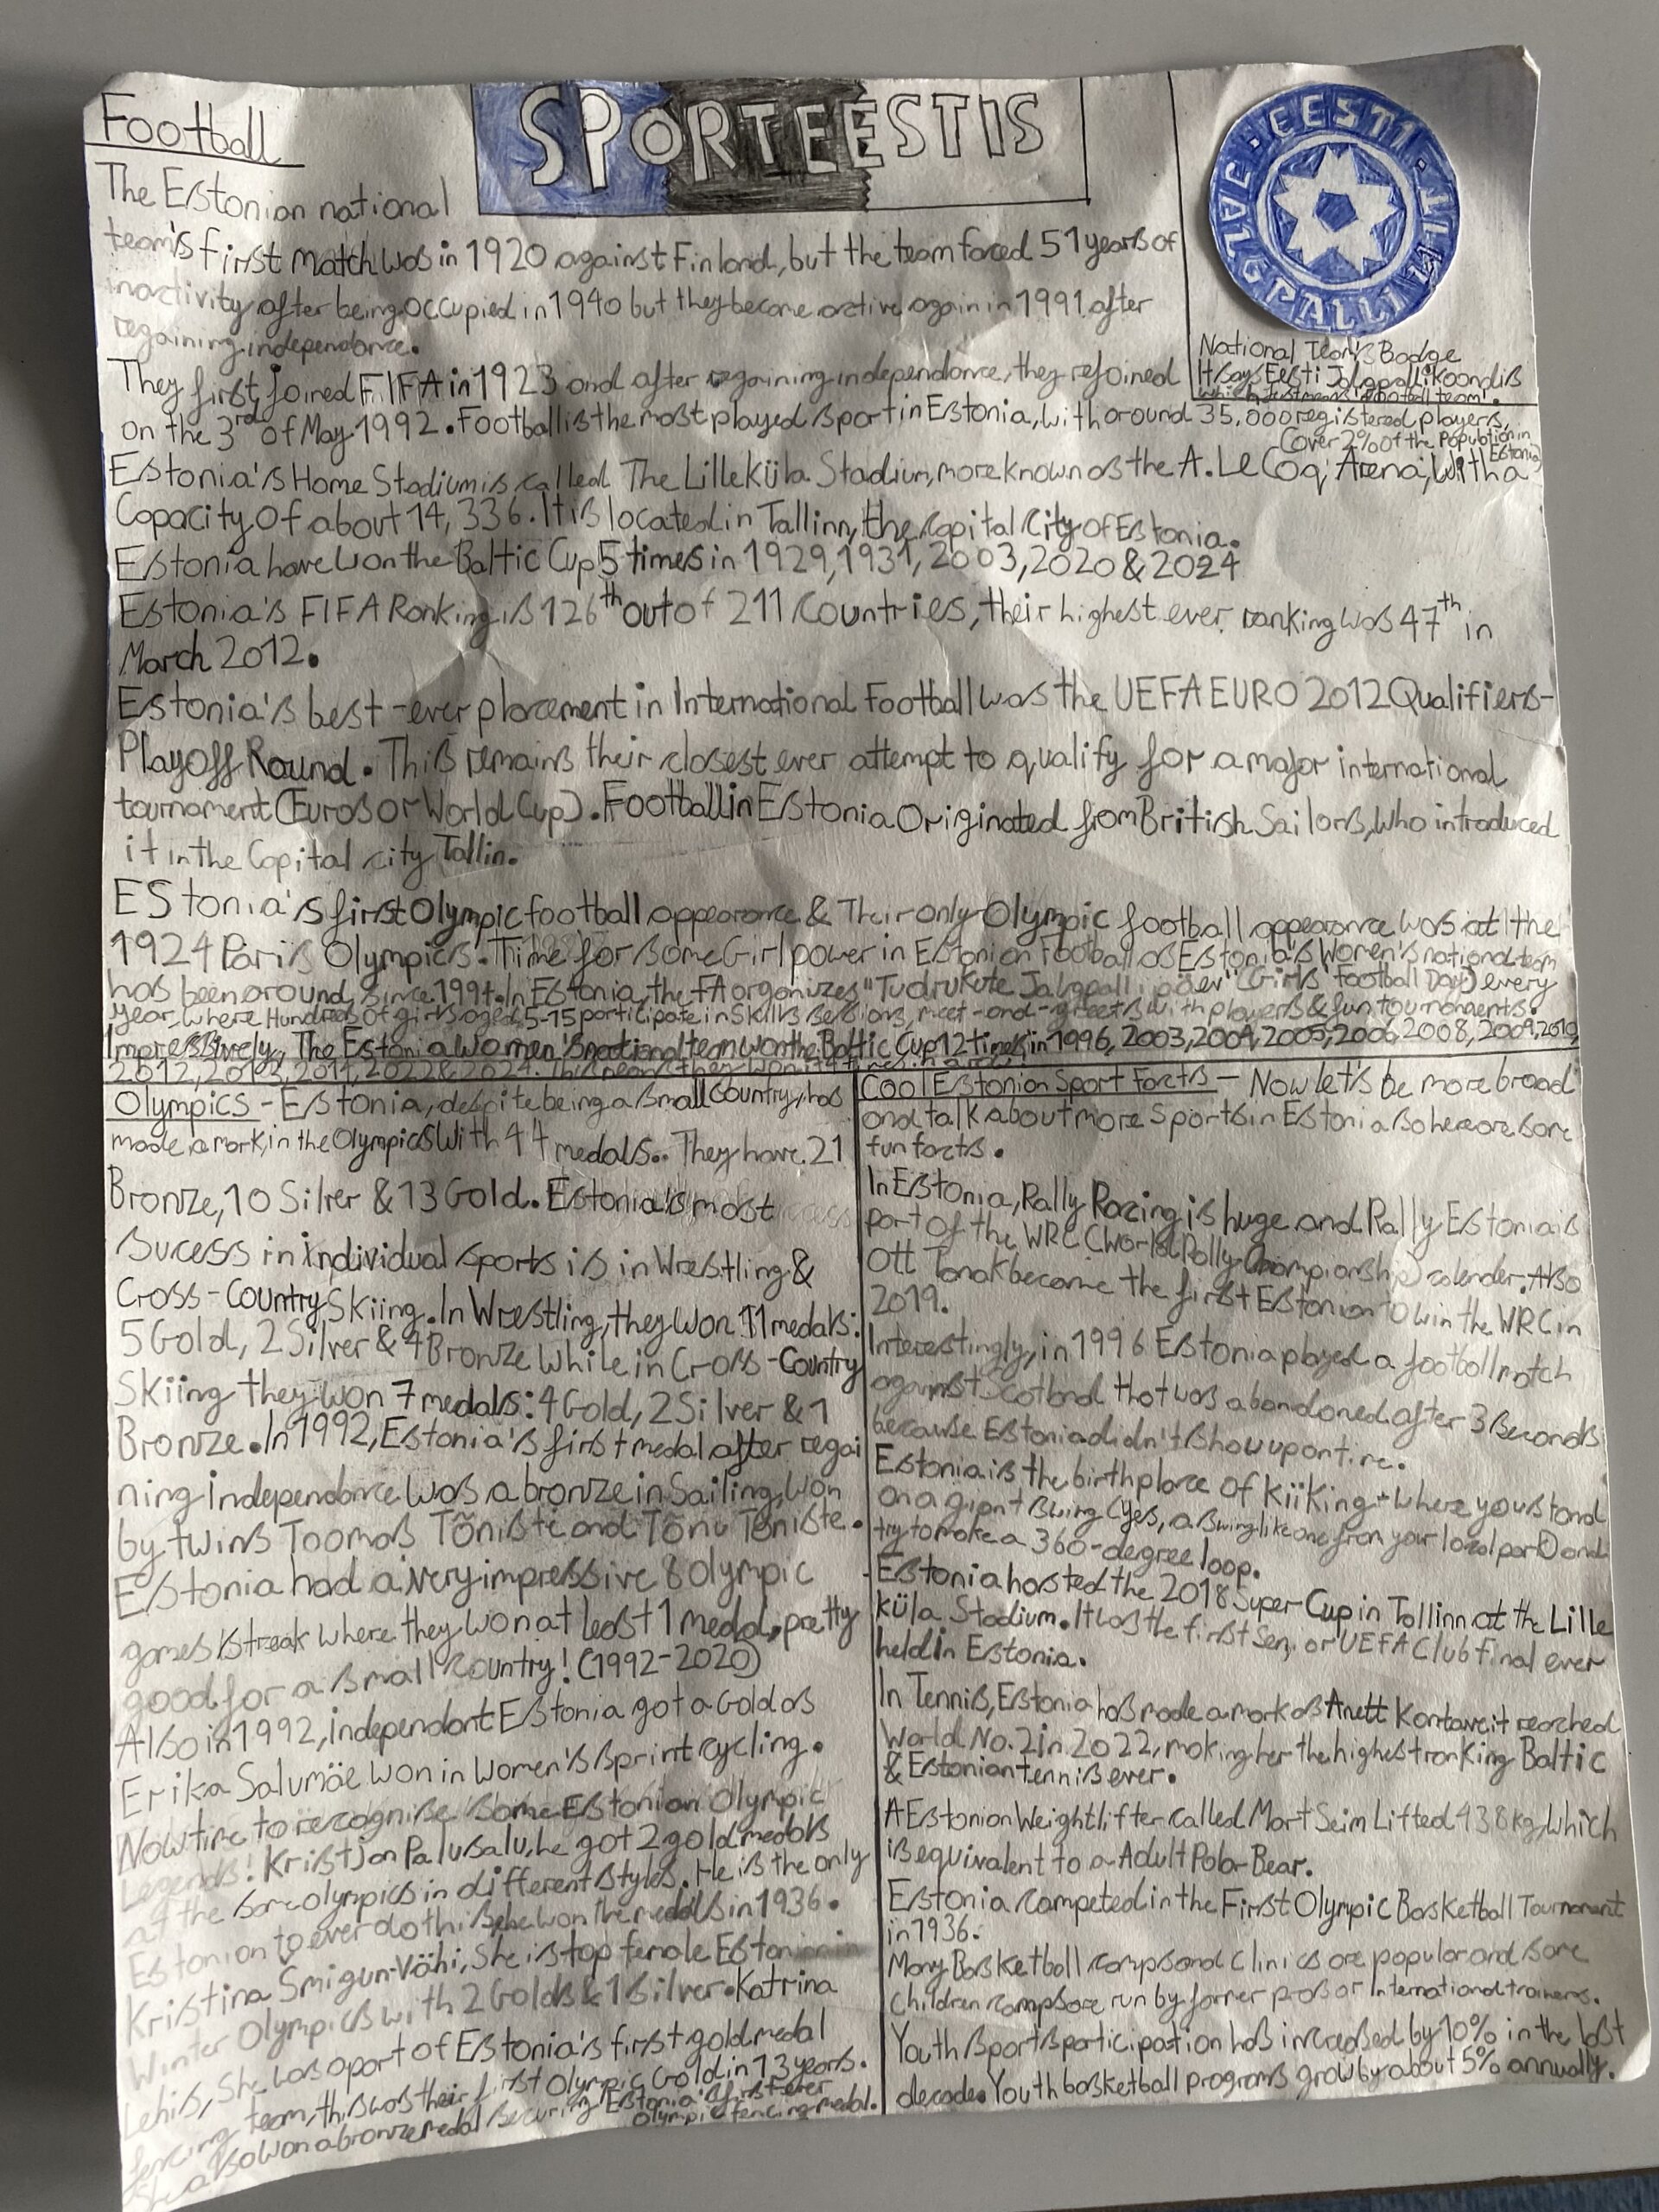 Football
SPORT EESTIS
The Estonian national
team's first match was in 1920 against Finland, but the team faced 51 years of
inactivity after being occupied in 1940 but they became active again in 1991 after
regaining independance.
EESTI JALGPALLI LIIT
National Team's Badge
It says Eesti Jalgpallikoondis
which just means 'football team'.
They first joined FIFA in 1923 and after regaining independance, they rejoined
on the 3rd of May 1992. Football is the most played sport in Estonia, with around 35,000 registered players,
(over 2% of the Population in
Estonia)
Estonia's Home Stadium is called The Lilleküla Stadium, more known as the A. Le Coq Arena, with a
Capacity Of about 14,336. It is located in Tallinn, the Capital City of Estonia.
Estonia have won the Baltic Cup 5 times in 1929, 1931, 2003, 2020 & 2024
Estonia's FIFA Ranking is 126th out of 211 Countries, their highest ever ranking was 47th in
March 2012.
Estonia's best-ever placement in International Football was the UEFA EURO 2012 Qualifiers-
Playoff Round. This remains their closest ever attempt to qualify for a major international
tournament (Euros or World Cup). Football in Estonia Originated from British Sailors, Who introduced
it in the Capital city Tallin.
EStonia's first Olympic football appearance & Their only Olympic football appearance was at the
1924 Paris Olympics. Time for some Girl power in Estonian Football as Estonia's Women's national team
has been around since 1994. In Estonia, the FA organizes "Tudrukute Jalgpallipäev" (Girls' Football Day) every
year, where Hundreds of girls aged 5-15 participate in Skills sessions, meet-and-greets with players & fun tournaments.
Impressively, The Estonia Women's national team won the Baltic Cup 12 times in 1996, 2003, 2004, 2005, 2006, 2008, 2009, 2010,
2012, 2013, 2014, 2022 & 2024. This means they won it
Olympics - Estonia, despite being a small Country, has
made a mark in the Olympics with 44 medals.. They have 21
Bronze, 10 Silver & 13 Gold. Estonia's most
sucess in individual sports is in Wrestling &
Cross-Country Skiing. In Wrestling, they won 11 medals:
5 Gold, 2 Silver & 4 Bronze while in Cross-Country
Skiing they won 7 medals: 4 Gold, 2 Silver & 1
Bronze. In 1992, Estonia's first medal after regai
ning independance was a bronze in Sailing, won
by twins Toomas Tõniste and Tõnu Tõniste.
Estonia had a very impressive 8 olympic
games streak where they won at least 1 medal, pretty
good for a small country! (1992-2020)
Also in 1992, independant Estonia got a Gold as
Erika Salumäe won in women's sprint cycling.
Now time to recognise some Estonian Olympic
Legends! Kristjan Palusalu, he got 2 gold medals
at the same olympics in different styles. He is the only
Estonian to ever do this, he won the medals in 1936.
Kristina Smigun-Vähi, She is top female Estonian in
Winter Olympics with 2 Golds & 1 Silver. Katrina
Lehis, She was a part of Estonia's first gold medal
fencing team, this was their first Olympic Gold in 13 years.
She also won a bronze medal securing Estonia's first ever
Olympic fencing medal.
Cool Estonian Sport Facts - Now let's be more broad
and talk about more Sports in Estonia so here are some
fun facts.
In Estonia, Rally Racing is huge and Rally Estonia is
part of the WRC (World Rally Championship) calender. Also
Ott Tanak became the first Estonian to win the WRC in
2019.
Interestingly, in 1996 Estonia played a football match
against Scotland that was abandoned after 3 seconds
because Estonia didn't show up on time.
Estonia is the birthplace of Kiiking - where you stand
on a giant swing (yes, a swing like one from your local park) and
try to make a 360-degree loop.
Estonia hosted the 2018 Super Cup in Tallinn at the Lille
küla Stadium. It was the first Senior UEFA Club Final ever
held in Estonia.
In Tennis, Estonia has made a mark as Anett Kontaveit reached
World No. 2 in 2022, making her the highest ranking Baltic
& Estonian tennis ever.
A Estonian Weightlifter called Mart Seim Lifted 438kg, which
is equivalent to a Adult Polar Bear.
Estonia competed in the First Olympic Basketball Tournament
in 1936.
Many Basketball camps and clinics are popular and some
children camps are run by former pros or International trainers.
Youth sports participation has increased by 10% in the last
decade. Youth basketball programs grow by about 5% annually.